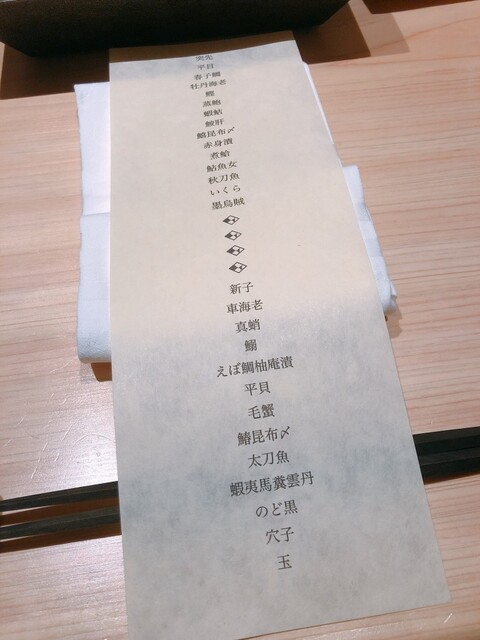 突先
平目
春子鯛
牡丹海老
鰹
蒸鮑
蝦蛄
鮟肝
鰆昆布〆
赤身漬
煮蛤
鮎魚女
秋刀魚
いくら
墨烏賊
新子
車海老
真蛸
鰯
えぼ鯛柚庵漬
平貝
毛蟹
鰆昆布〆
太刀魚
蝦夷馬糞雲丹
のど黒
穴子
玉